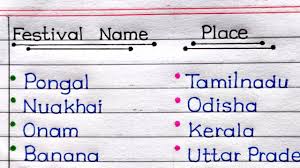 Festival Name Place
Pongal Tamilnadu
Nuakhai Odisha
Onam Kerala
Banana Uttar Prade